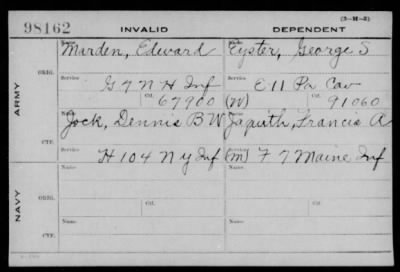 (3-M-3)
98162 INVALID DEPENDENT
Name Name
Marden, Edward Eyster, George S
ORIG. Service Service
G 7 N H Inf E 11 Pa Cav
Ctf. Ctf.
67900 (W) 91060
ARMY
Name Name
Jock, Dennis B W Japuith, Francis A
CTF. Service Service
H 104 N Y Inf (M) F 7 Maine Inf
Name Name
ORIG.
Service Ctf. Service Ctf.
NAVY
Name Name
CTF.
Service Service